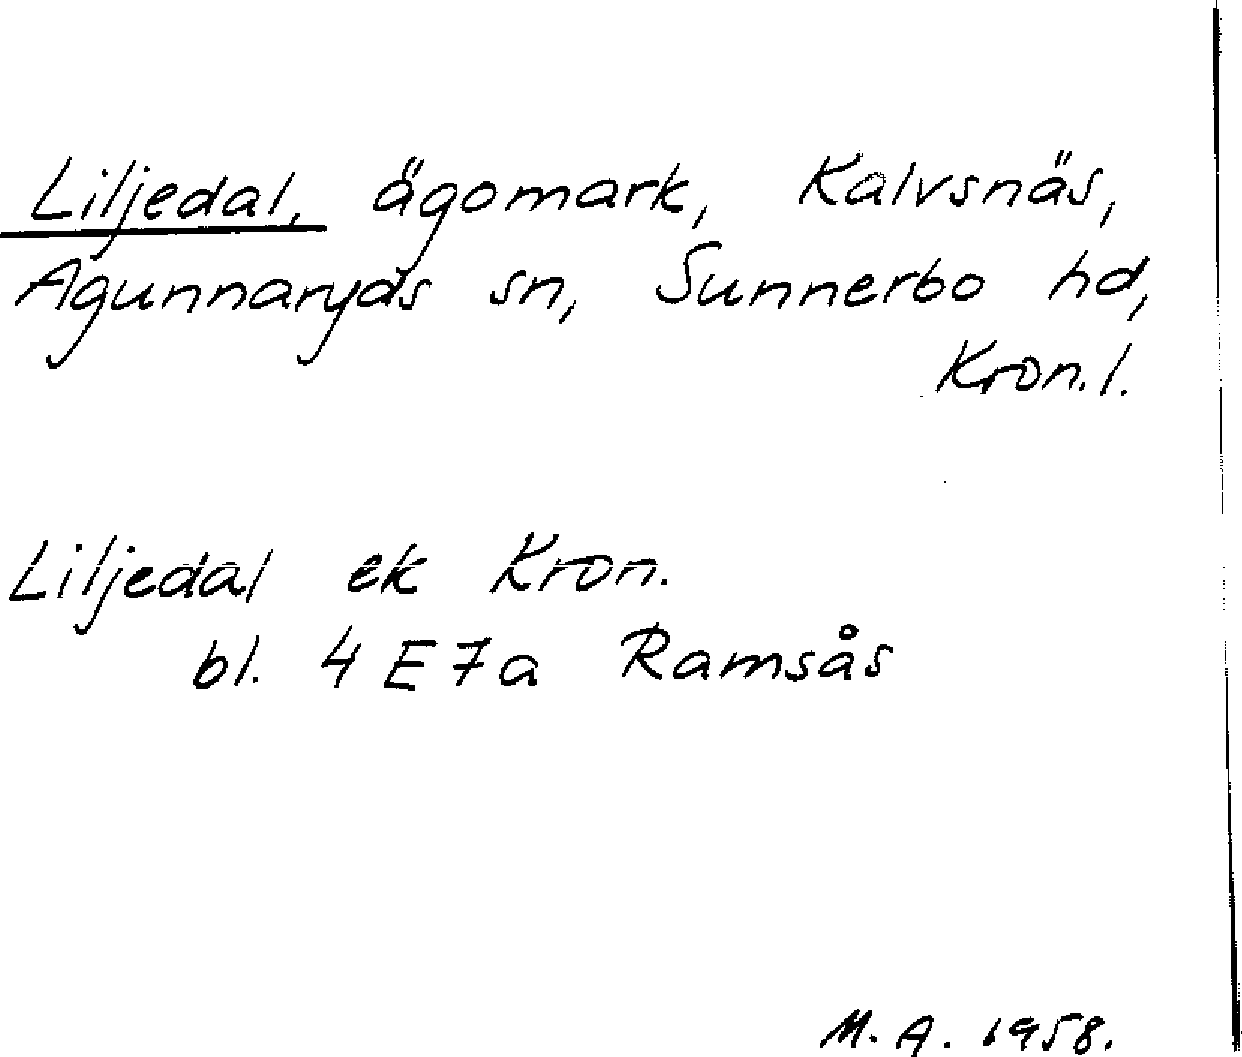 Liljedal, ägomark, Kalvsnäs,
Agunnaryds sn, Sunnerbo hd,
Kron.l.
Liljedal ek Kron.
bl. 4 E 7a Ramsås
M.A. 1958.